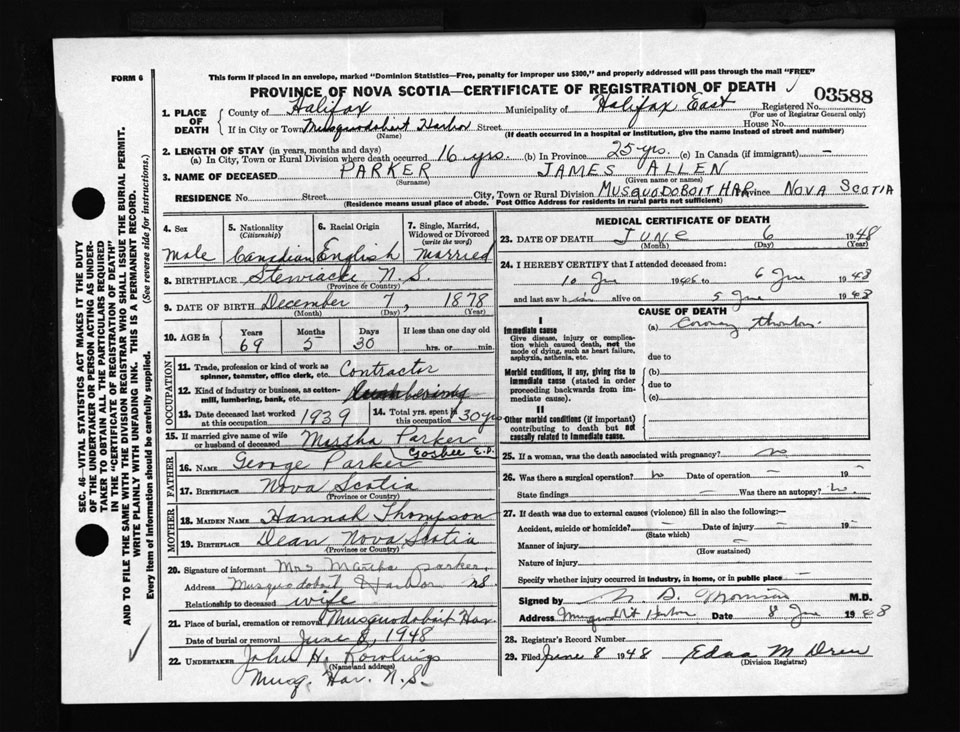 FORM 6
This form if placed in an envelope, marked "Dominion Statistics—Free, penalty for improper use $300," and properly addressed will pass through the mail "FREE"
PROVINCE OF NOVA SCOTIA—CERTIFICATE OF REGISTRATION OF DEATH
03588
1. PLACE OF DEATH
County of Halifax Municipality of Halifax East Registered No.
(For use of Registrar General only)
If in City or Town Musquodoboit Harbor Street House No.
(Name) (If death occurred in a hospital or institution, give the name instead of street and number)
2. LENGTH OF STAY (in years, months and days)
(a) In City, Town or Rural Division where death occurred 16 yrs. (b) In Province 25 yrs. (c) In Canada (if immigrant) —
3. NAME OF DECEASED PARKER JAMES ALLEN
(Surname) (Given name or names)
RESIDENCE No. Street City, Town or Rural Division MUSQUODOBOIT HAR Province NOVA SCOTIA
(Residence means usual place of abode. Post Office Address for residents in rural parts not sufficient)
4. Sex
Male
5. Nationality
(Citizenship)
Canadian
6. Racial Origin
English
7. Single, Married, Widowed or Divorced
(write the word)
Married
8. BIRTHPLACE Stewiacke N.S
(Province or Country)
9. DATE OF BIRTH December 7, 1878
(Month) (Day) (Year)
10. AGE in
Years 69
Months 5
Days 30
If less than one day old
hrs. or min.
OCCUPATION
11. Trade, profession or kind of work as spinner, teamster, office clerk, etc. Contractor
12. Kind of industry or business, as cotton-mill, lumbering, bank, etc.
13. Date deceased last worked at this occupation 1939
14. Total yrs. spent in this occupation 30 yrs
15. If married give name of wife or husband of deceased Martha Parker
Gosbee E.D.
FATHER
16. NAME George Parker
17. BIRTHPLACE Nova Scotia
(Province or Country)
MOTHER
18. MAIDEN NAME Hannah Thompson
19. BIRTHPLACE Dean Nova Scotia
(Province or Country)
20. Signature of informant Mrs Martha Parker
Address Musquodoboit Harbor NS
Relationship to deceased wife
21. Place of burial, cremation or removal Musquodoboit Har.
Date of burial or removal June 8, 1948
22. UNDERTAKER John H. Rowlings
(Name and address)
Musq. Har. N.S.
MEDICAL CERTIFICATE OF DEATH
23. DATE OF DEATH JUNE 6 1948
(Month) (Day) (Year)
24. I HEREBY CERTIFY that I attended deceased from:
10 Jne 194 to 6 Jne 1948
and last saw h im alive on 5 Jne 1948
CAUSE OF DEATH
I
Immediate cause
Give disease, injury or complication which caused death, not the mode of dying, such as heart failure, asphyxia, asthenia, etc.
(a) Coronary thrombos.
due to
Morbid conditions, if any, giving rise to immediate cause (stated in order proceeding backwards from immediate cause).
(b)
due to
(c)
II
Other morbid conditions (if important) contributing to death but not causally related to immediate cause.
25. If a woman, was the death associated with pregnancy? no
26. Was there a surgical operation? no Date of operation — 19 —
State findings — Was there an autopsy? no.
27. If death was due to external causes (violence) fill in also the following:—
Accident, suicide or homicide? — Date of injury — 19 —
(State which)
Manner of injury —
(How sustained)
Nature of injury
Specify whether injury occurred in industry, in home, or in public place —
Signed by Morrison M.D.
Address Musquodoboit Harbour Date 8 Jne 1948
28. Registrar's Record Number
29. Filed June 8 1948 Edna M Drew
(Division Registrar)
SEC. 46—VITAL STATISTICS ACT MAKES IT THE DUTY
OF THE UNDERTAKER OR PERSON ACTING AS UNDER-
TAKER TO OBTAIN ALL THE PARTICULARS REQUIRED
IN THE "CERTIFICATE OF REGISTRATION OF DEATH"
AND TO FILE THE SAME WITH THE DIVISION REGISTRAR WHO SHALL ISSUE THE BURIAL PERMIT.
WRITE PLAINLY WITH UNFADING INK. THIS IS A PERMANENT RECORD.
Every item of information should be carefully supplied. (See reverse side for instructions.)